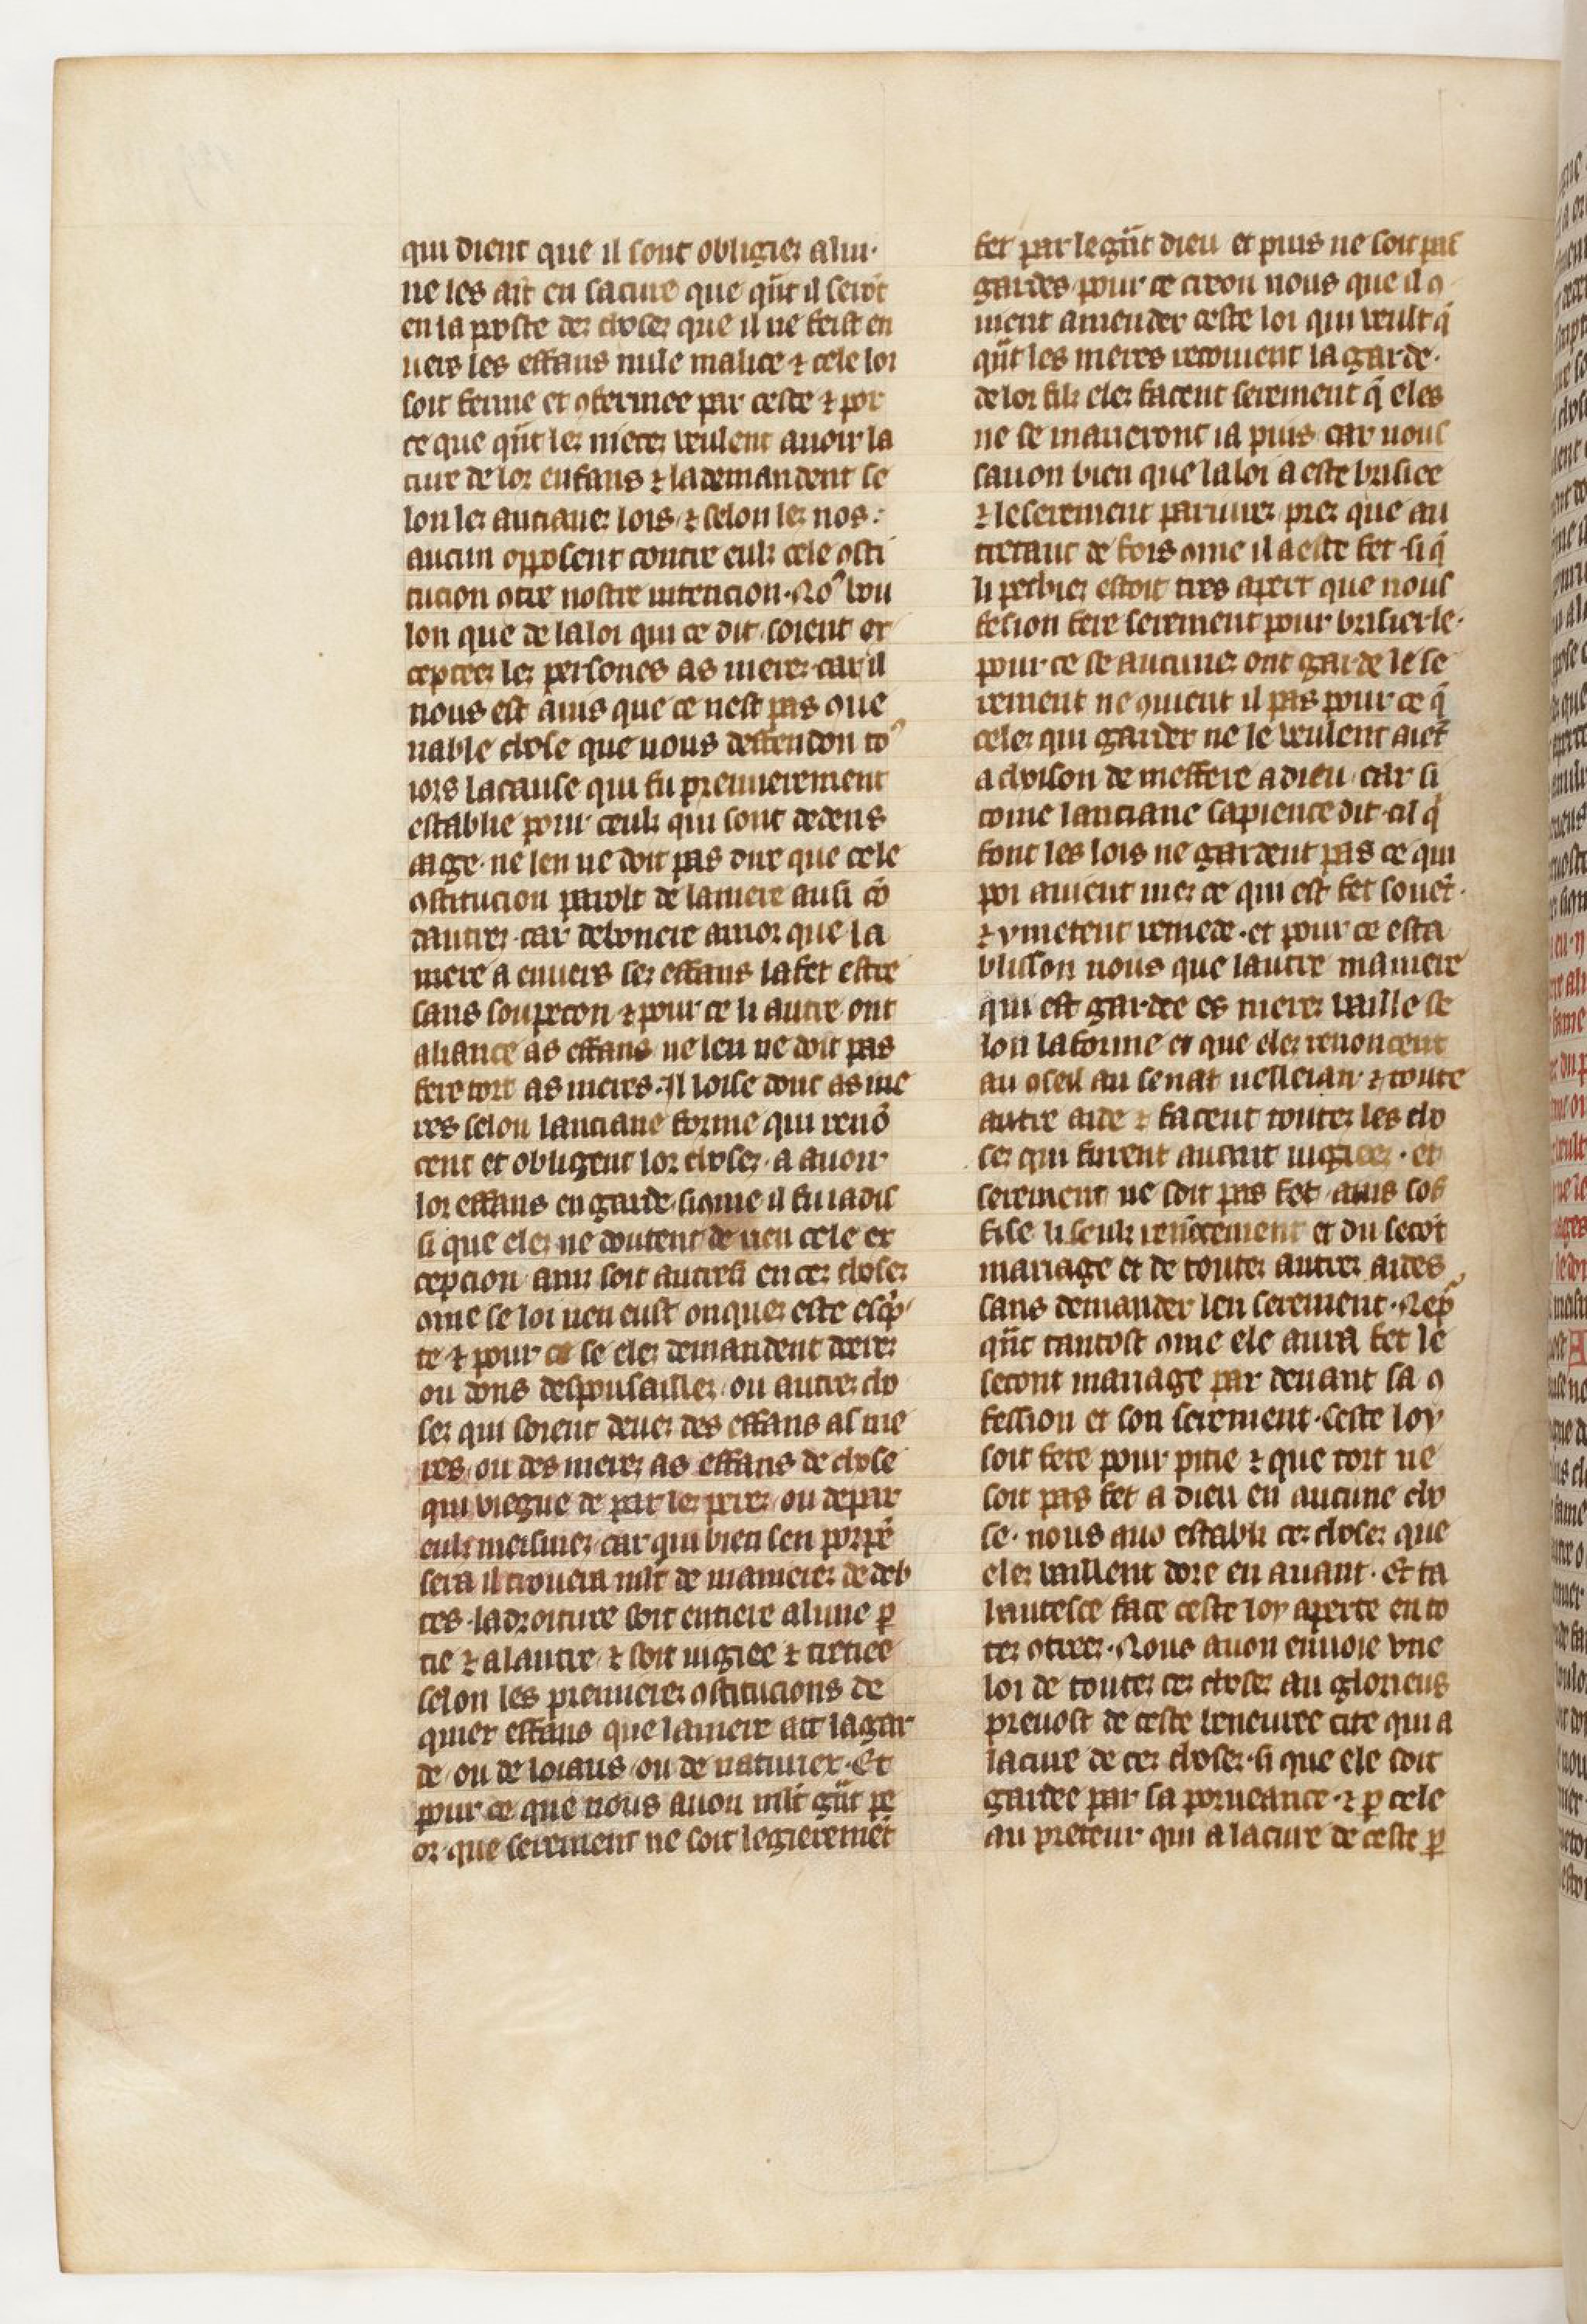 qui dient que il sont obligiez a lui.
ne les ait en sa cure que qñt il serōt
en la poste des choses que il ne feist en
uers les effans nule malice ⁊ cele loi
soit ferme et ꝯfermee par ceste ⁊ por
ce que qñt les meres veulent auoir la
cure de lor enfans ⁊ la demandent se
lon les ancianes lois ⁊ selon les nos.
aucun opposent contre euls cele ꝯsti
tucion ꝯtre nostre intencion. Noꝰ vou
lon que de la loi qui ce dit soient ex
ceptees les persones as meres car il
nous est auis que ce nest pas ꝯue
nable chose que nous deffendon toꝰ
iors la cause qui fu premierement
establie pour ceuls qui sont dedens
aage. ne len ne doit pas dire que cele
ꝯstitucion parolt de la mere ausi cō
dautres. car deboneire amor que la
mere a enuers ses effans la fet estre
sans soupecon ⁊ pour ce li autre ont
aliance as effans ne len ne doit pas
fere tort as meres. Il loise donc as me
res selon lanciane forme qui renō
cent et obligent lor choses. a auoir
lor effans en garde. si ꝯme il fu iadis
si que eles ne doutent de rien cele ex
cepcion ainz soit autresi en ces choses
ꝯme se loi nen eust onques este escp̄
te ⁊ pour ce se eles demandent detes
ou dons despousailles ou autres cho
ses qui soient deues des effans as me
res. ou des meres as effans de chose
qui viegne de par les peres ou de par
euls meismes. car qui bien sen porpē
sera il trouera mlt de manieres de deb
tes. la droiture soit entiere a lune ꝑ
tie ⁊ a lautre. ⁊ soit iugiee ⁊ tretiee
selon les premieres ꝯstitucions de
quiex effans que la mere ait la gar
de. ou de loiaus. ou de naturiex. Et
pour ce que nous auon mlt gñt pe
or que serement ne soit legieremēt
fet par le gñt dieu et puis ne soit pas
gardes pour ce creon nous que il ꝯ
uient amender ceste loi qui veult q̄
qñt les meres recoiuent la garde.
de lor fils eles facent serement q̄ eles
ne se marieront ia puis. car nous
sauon bien que la loi a este brisiee
⁊ le serement pariures pres que au
tretant de fois ꝯme il a este fet. si q̄
li pechiez estoit tres apert que nous
fesion fere serement pour brisier le.
pour ce se aucunes ont garde le se
rement ne ꝯuient il pas pour ce q̄
celes qui garder ne le veulent aiēt
achoison de meffere a dieu. car si
come lanciane sapience dit. cil q̄
font les lois ne gardent pas ce qui
poi auient mes ce qui est fet souēt.
⁊ y metent remede. et pour ce esta
blisson nous que lautre maniere
qui est gardee es meres vaille se
lon la forme et que eles renoncent
au ꝯseil au senat velleian ⁊ toute
autre aide ⁊ facent toutes les cho
ses qui furent auant iugiees. et
serement ne soit pas fet. ains sof
fise li seuls renōcement et du secōt
mariage et de toutes autres aides
sans demander len serement. Nep̄
qñt tantost ꝯme ele aura fet le
secont mariage par deuant sa ꝯ
fession et son serement. Ceste loy
soit fete pour pitie ⁊ que tort ne
soit pas fet a dieu en aucune cho
se. nous auō establi ces choses que
eles vaillent dore en auant. Et ta
hautesce face ceste loy aperte en to
tes ꝯtrees. Nous auon enuoie vne
loi de toutes ces choses au glorieus
preuost de ceste beneuree cite qui a
la cure de ces choses. si que ele soit
gardee par sa porueance. ⁊ ꝑ cele
au preteur qui a la cure de ceste ꝑ